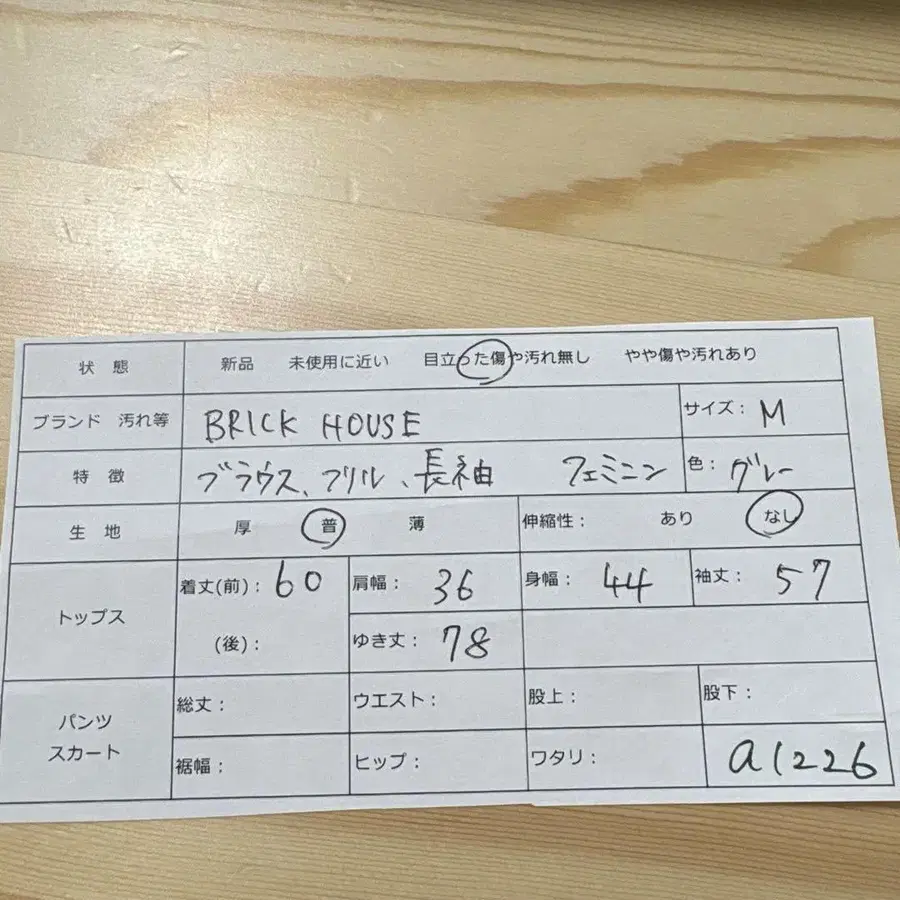 状 態 新品 未使用に近い 目立った傷や汚れ無し やや傷や汚れあり
ブランド 汚れ等 BRICK HOUSE サイズ： M
特 徴 ブラウス、フリル、長袖 フェミニン 色： グレー
生 地 厚 普 薄 伸縮性： あり なし
トップス 着丈(前)： 60 肩幅： 36 身幅： 44 袖丈： 57
(後)： ゆき丈： 78
パンツ スカート 総丈： ウエスト： 股上： 股下：
裾幅： ヒップ： ワタリ： a1226